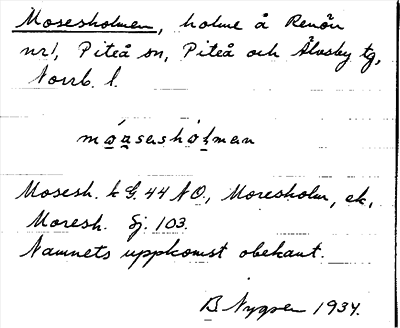 Mosesholmen, holme å Renön
nr 1, Piteå sn, Piteå och Älvsby tg,
Norrb. l.
mǫ́ǫseshólmen
Mosesh. k G. 44 NO., Moresholm, ek,
Moresh. Sj. 103.
Namnets uppkomst obekant.
B Nygren 1934.